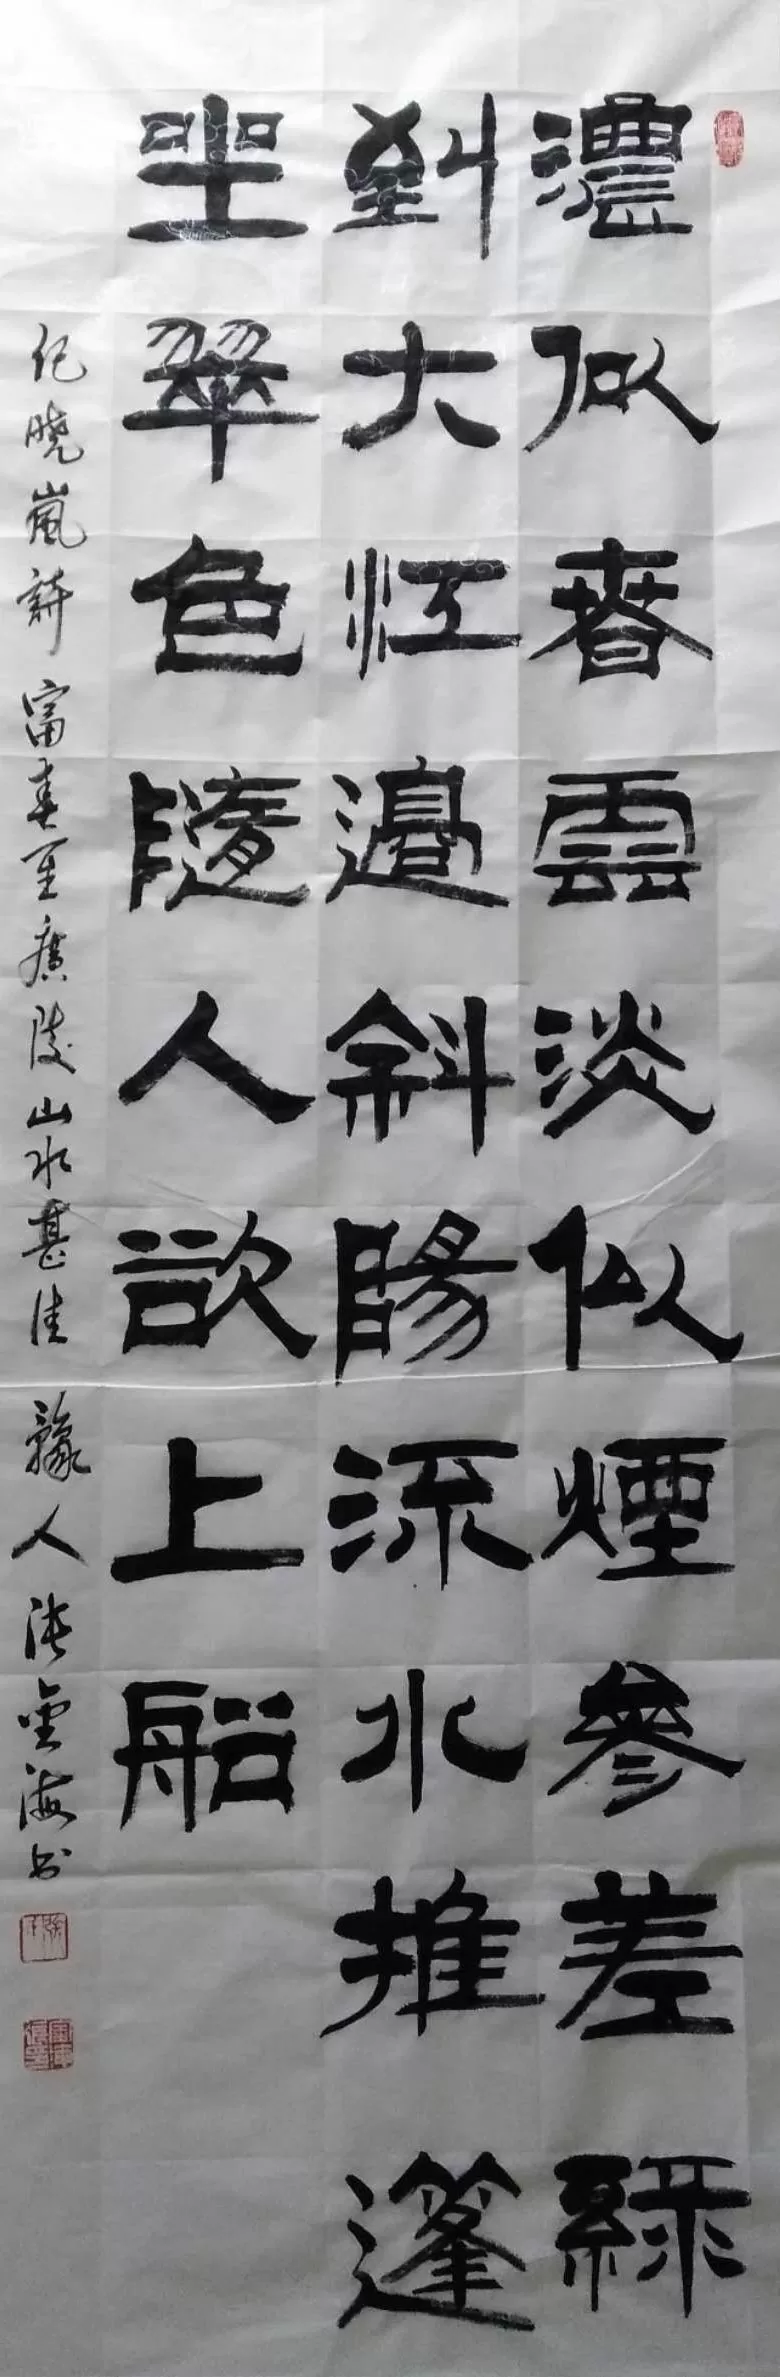 濃似春雲淡似煙參差綠
到大江邊斜陽流水推篷
坐翠色隨人欲上船
纪晓嵐詩 富春至廣陵山水甚佳 豫人张金海书